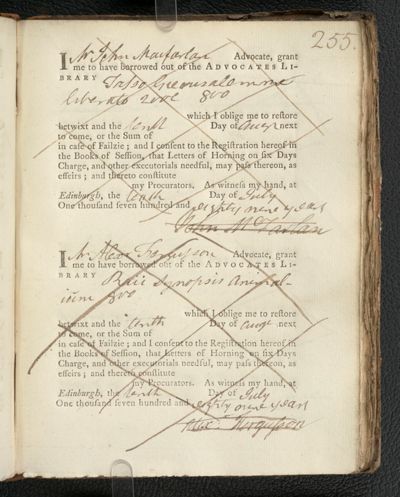 255.
I Mr John Macfarlan Advocate, grant
me to have borrowed out of the ADVOCATES LI-
BRARY Tasso Gierusalemme
liberata 2 vol 8vo
which I oblige me to reſtore
betwixt and the tenth Day of Augt next
to come, or the Sum of
in caſe of Failzie; and I conſent to the Regiſtration hereof in
the Books of Seſſion, that Letters of Horning on ſix Days
Charge, and other executorials needful, may paſs thereon, as
effeirs; and thereto conſtitute
my Procurators. As witneſs my hand, at
Edinburgh, the tenth Day of July
One thouſand ſeven hundred and eighty nine years
John McFarlan
I Mr Alexr Ferguſson Advocate, grant
me to have borrowed out of the ADVOCATES LI-
BRARY Raii Synopsis Animal-
ium 8vo
which I oblige me to reſtore
betwixt and the tenth Day of Augt next
to come, or the Sum of
in caſe of Failzie; and I conſent to the Regiſtration hereof in
the Books of Seſſion, that Letters of Horning on ſix Days
Charge, and other executorials needful, may paſs thereon, as
effeirs; and thereto conſtitute
my Procurators. As witneſs my hand, at
Edinburgh, the tenth Day of July
One thouſand ſeven hundred and eighty nine years
Alexr. Ferguſson